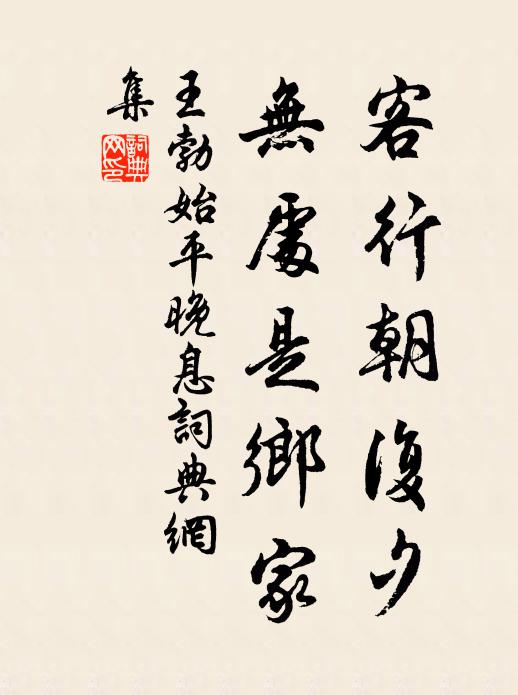 客行朝復夕
無處是鄉家
王勃始平晚息詞典網
集
詞典
网印